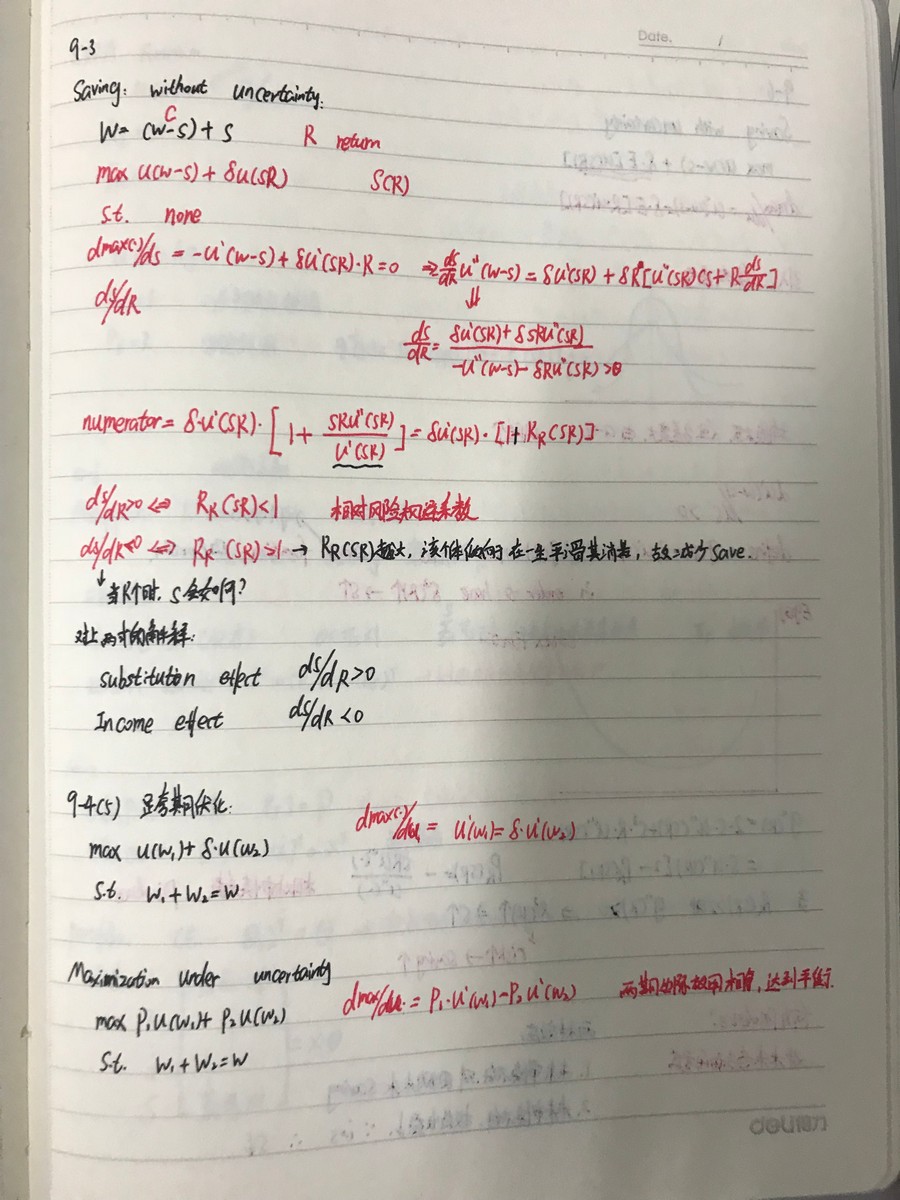 Date. /
9-3
Saving: without uncertainty:
C
W= (w-s) + s R return
max u(w-s) + δu(sR) S(R)
s.t. none
dmax(·)/ds = -u'(w-s) + δu'(sR)·R = 0 ⇒ ds/dR u''(w-s) = δu'(sR) + δR[u''(sR)(s + R ds/dR]
ds/dR ⇓
ds/dR = δu'(sR) + δsRu''(sR) / -u''(w-s) - δRu''(sR) >0
numerator = δ·u'(sR)·[1 + sRu''(sR)/u'(sR)] = δu'(sR)·[1+ RR(sR)]
ds/dR>0 ⇔ RR(sR)<1 相对风险规避系数
ds/dR<0 ⇔ RR(sR)>1 → RR(sR)越大, 该个体倾向于在一生平滑其消费, 故减少save.
↓当R↑时, s会如何?
对上两式的解释:
substitution effect ds/dR>0
Income effect ds/dR<0
9-4(5) 是跨期优化: dmax(·)/dw1 = u'(w1) = δ·u'(w2)
max u(w1) + δ·u(w2)
s.t. w1+w2=w
Maximization under uncertainty
max P1u(w1)+ P2u(w2) dmax/dw = P1·u'(w1) - P2u'(w2) 两期边际效用相等, 达到平衡.
s.t. w1+w2=w
deli得力